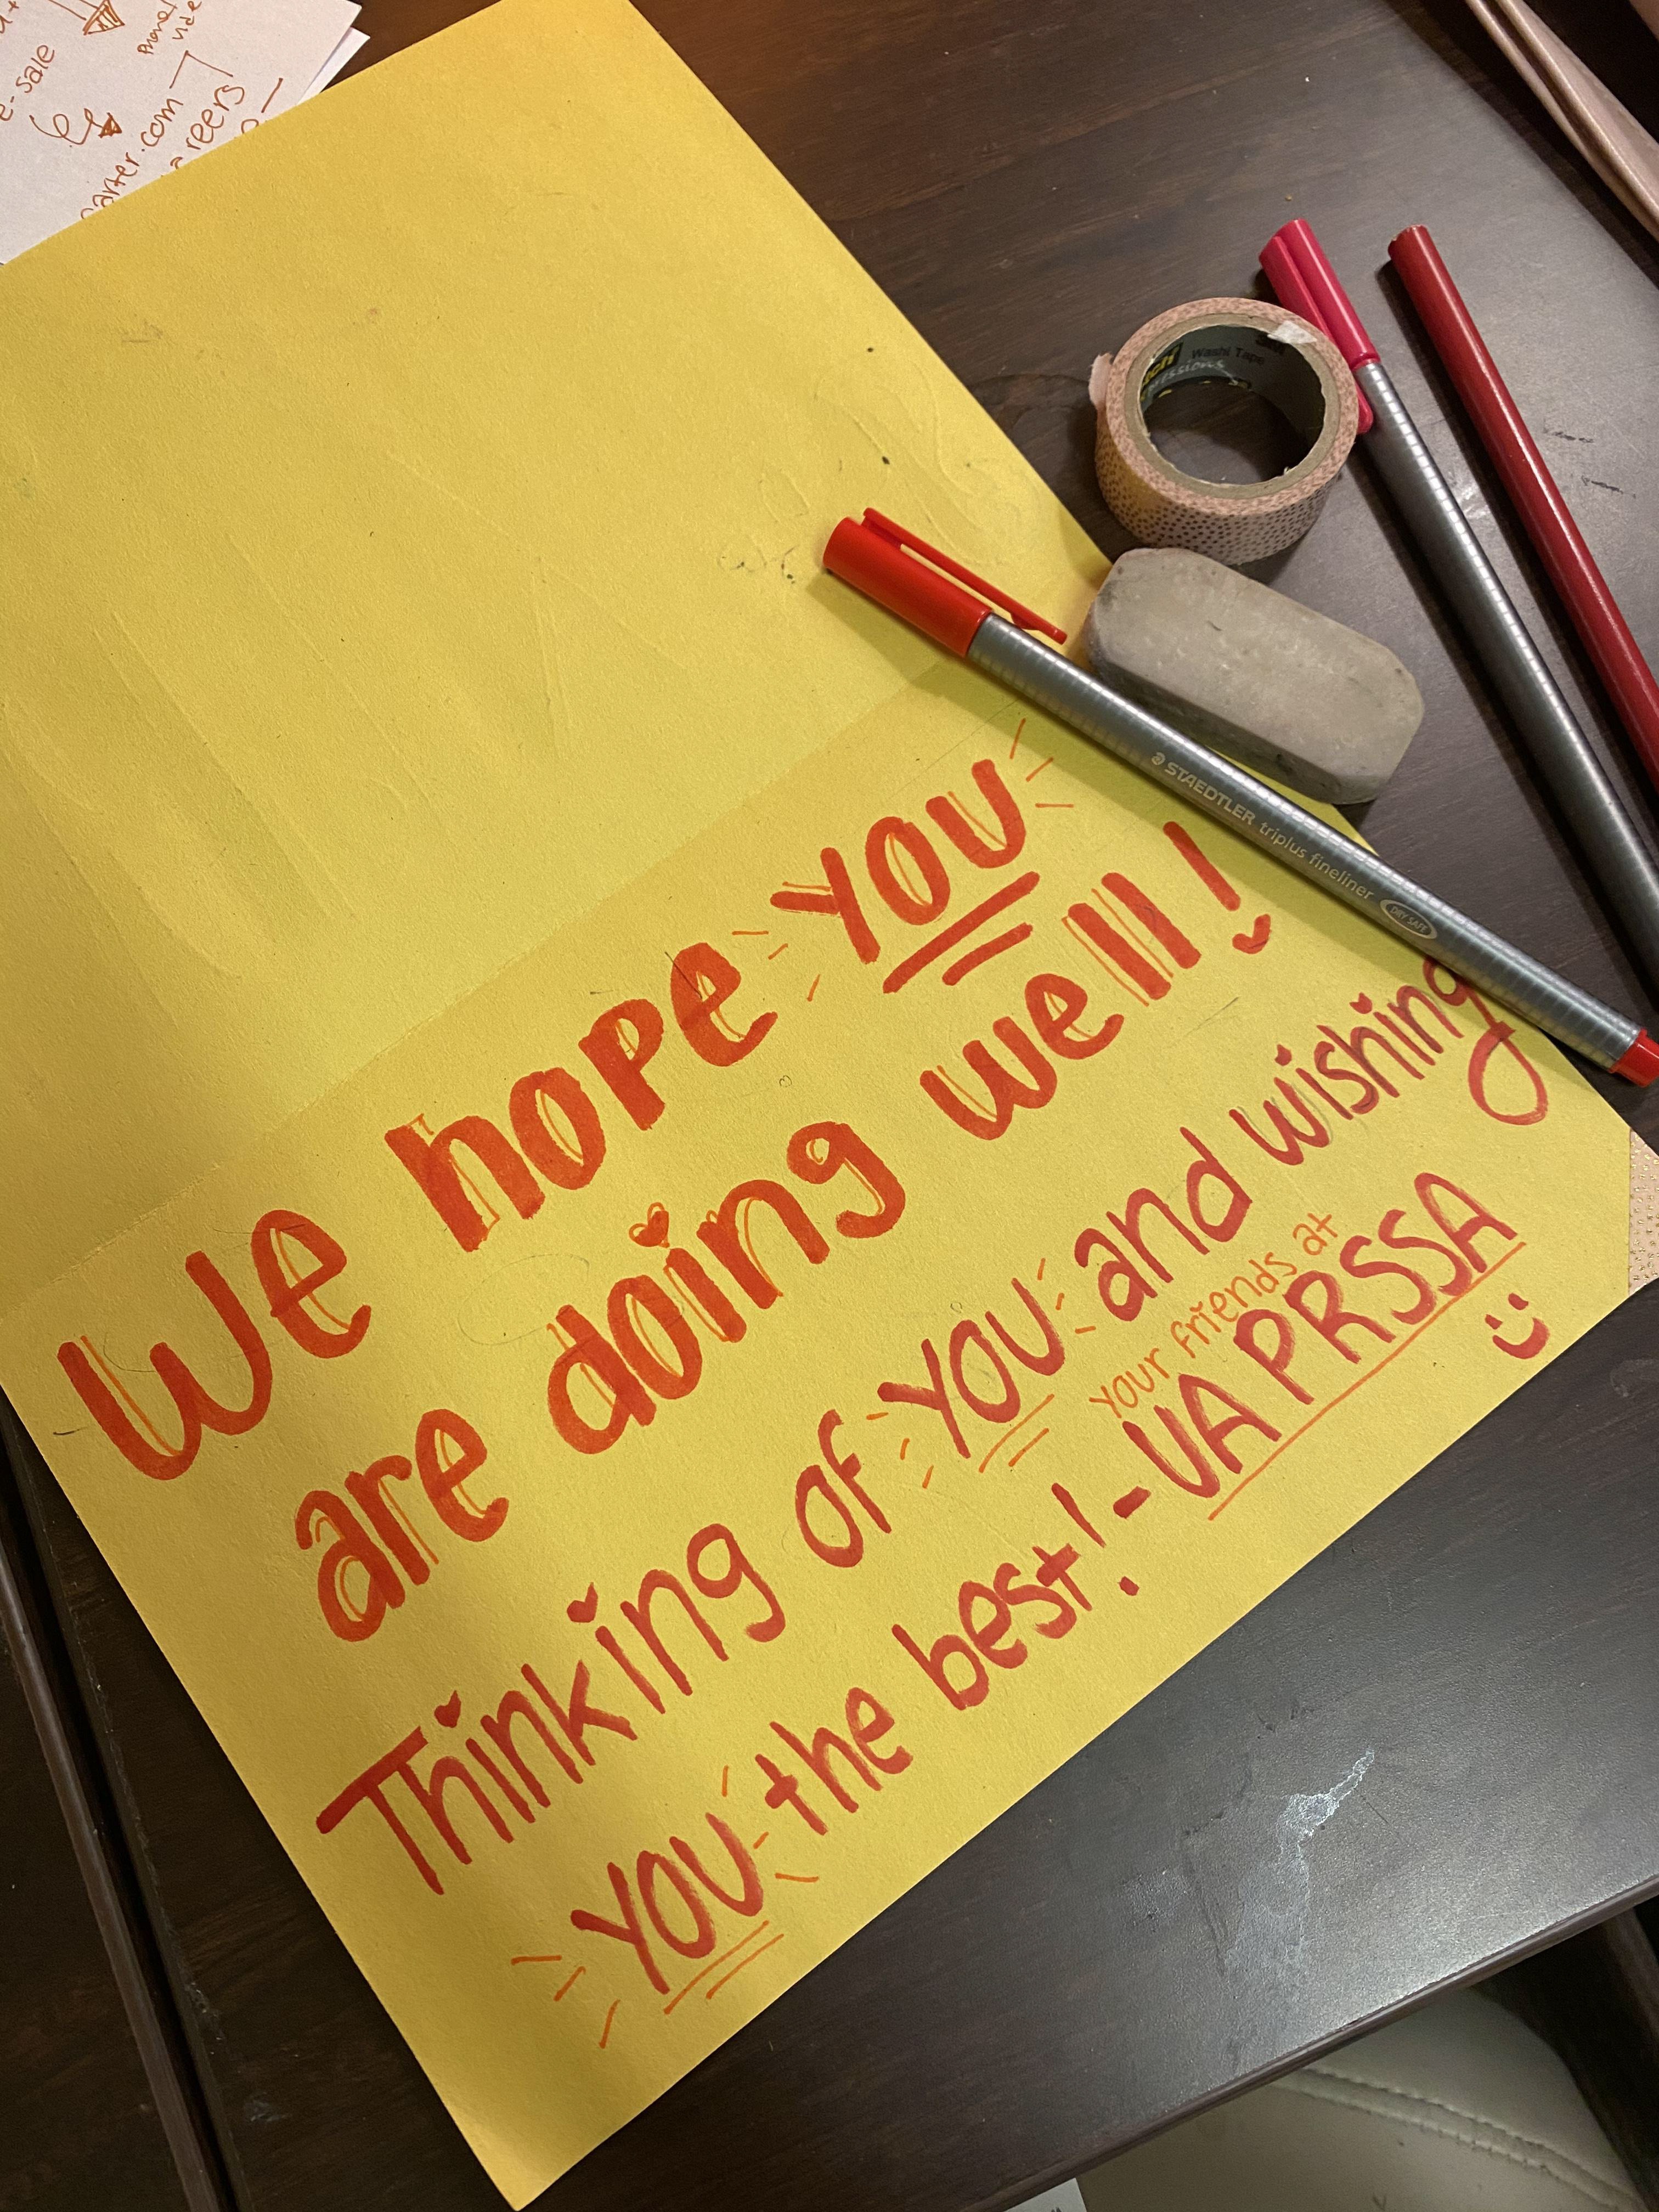 e-sale
Phone/
vide
carter.com
careers
We hope YOU
are doing well!
Thinking of YOU and wishing
YOU the best! - UA PRSSA
your friends at
STAEDTLER triplus fineliner
DRY SAFE
3M
Washi Tape